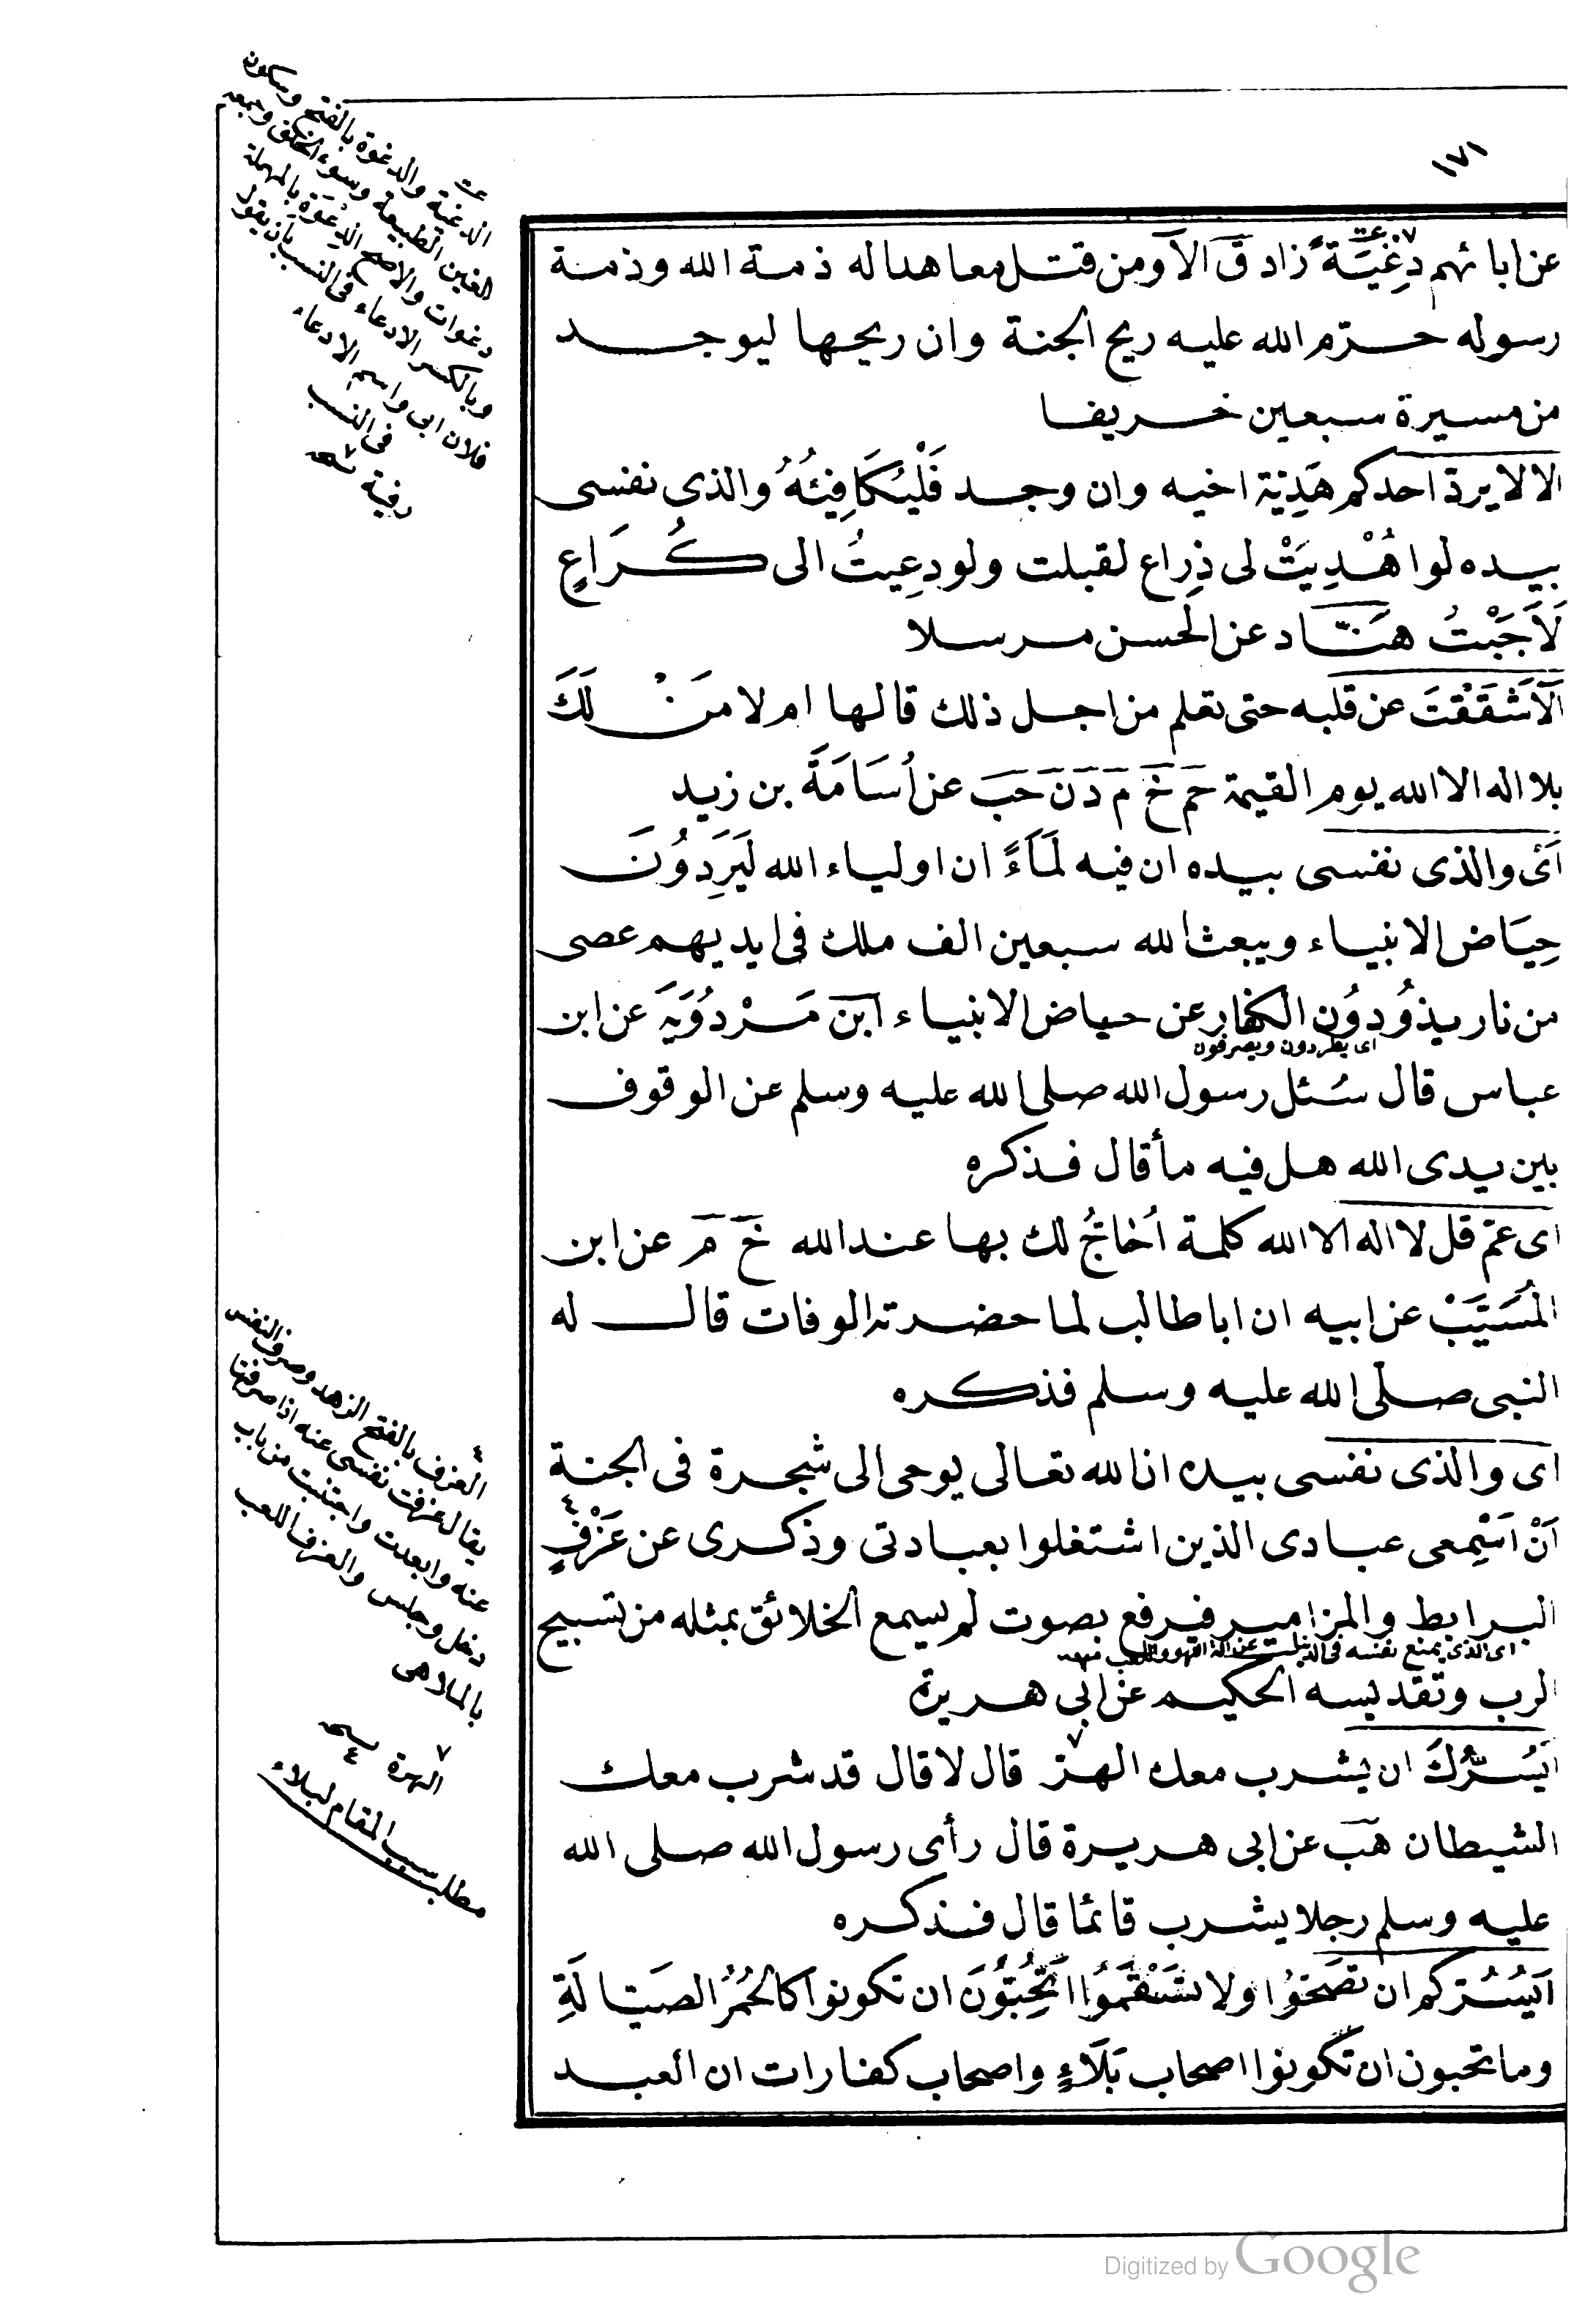 ١٧١
عن ابائهم دِغْيَةً زاد ق الاَ ومن قتل معاهدا له ذمة الله وذمة
رسوله حرّم الله عليه ريح الجنة وان ريحها ليوجد
من مسيرة سبعين خريفا
الا لا يردّ احدكم هَدِيّة اخيه وان وجد فَلْيُكَافِيئُهُ والذى نفسى
بيده لو اُهْدِيَتْ لى ذِراع لقبلت ولو دعِيتُ الى كُرَاعٍ
لَاَجَبْتُ هَنّاد عن الحسن مرسلا
اَلاَ شَقَقْتَ عن قلبه حتى تعلم من اجل ذلك قالها ام لا مَنْ لَكَ
بلا اله الا الله يوم القيمة حَم خَ مَ دَ نَ حَبَ عن اُسَامَةَ بن زيد
اَىْ والذى نفسى بيده ان فيه لَمَاءً ان اولياء الله لَيَرِدُونَ
حِيَاض الانبياء ويبعث الله سبعين الف ملك فى ايديهم عصى
من نار يذُودُون الكفار عن حياض الانبياء ابن مَرْدُوَيَه عن ابن
اى يطردون ويصرفون
عباس قال سُئل رسول الله صلى الله عليه وسلم عن الوقوف
بين يدى الله هل فيه ماء قال فذكره
اى عمّ قل لا اله الا الله كلمة اُحَاجُّ لك بها عند الله خَ مَ عن ابن
المُسَيَّبْ عن ابيه ان ابا طالب لما حضرته الوفات قال له
النبى صلّى الله عليه وسلم فذكره
اى والذى نفسى بيده ان الله تعالى يوحى الى شجرة فى الجنة
اَنْ اَسْمِعى عبادى الذين اشتغلوا بعبادتى وذكرى عن عَزْفٍ ٤
البرابط والمزامير فيرفع بصوت لم يسمع الخلائق بمثله من تسبيح
اى الذى يمنع نفسه فى الدنيا
الرب وتقديسه الحكيم عن ابى هريرة
اَيَسُرُّكَ ان يشرب معك الهرّ ٧ قال لا قال قد شرب معك
الشيطان هَبَ عن ابى هريرة قال رأى رسول الله صلى الله
عليه وسلم رجلا يشرب قائما قال فذكره
اَيَسُرّكم ان تَصَحّوُا ولا تَسْقَمُوا اَتُحِبُّونَ ان تكونوا كالحُمُرُ الصَيّالَةِ
وما تحبون ان تكونوا اصحاب بَلَاءٍ واصحاب كفارات ان العبد
الدغية والدغوة بالفتح وسكون
الغين الطبيعة وسوء الخلق وجمعه
دغوات والاصح الدِعْوَة بالمهملة
وبالكسر الادعاء فى النسب بان يقول
فلان ابى واسم الادعاء
فى النسب
٤ العزف بالفتح الزهد وصرف النفس
يقال عزفت نفسى عنه اذا صرفتها
عنه وابعدت واجتنبت من باب
دخل وجلس والعزف اللعب
بالملاهى
٧ الهرة
مطلب سبب المقام لبلاء
Digitized by Google